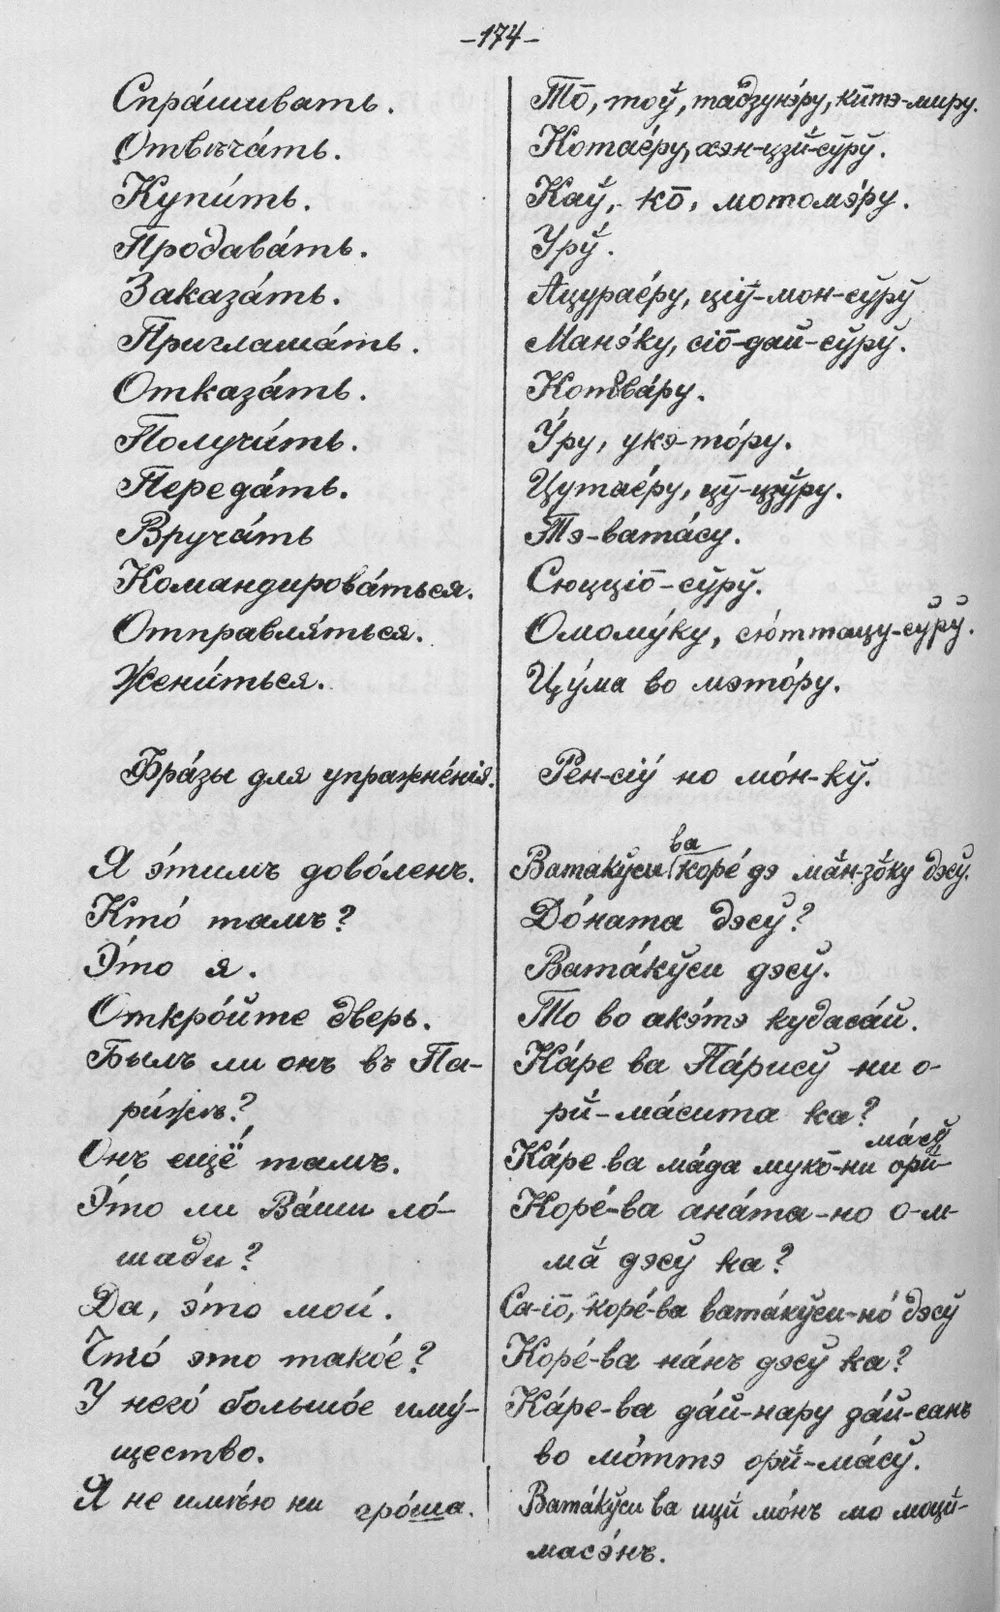 -174-
Спра́шивать. То̄, тоў, тадзунэ́ру, кӣтэ-миру.
Отвѣча́ть. Котаэ́ру, хэн-цзй-сўрў.
Купи́ть. Каў, ко̄, мотомэ́ру.
Продава́ть. Урў.
Заказа́ть. Ацураэ́ру, цiў-мон-сўрў
Приглаша́ть. Манэ́ку, сiо̄-дай-сўрў.
Отказа́ть. Котова́ру.
Получи́ть. У́ру, укэ-то́ру.
Переда́ть. Цутаэ́ру, цӯ-цзӯру.
Вруча́ть Тэ-вата́су.
Командирова́ться. Сюццiо̄-сўрў.
Отправля́ться. Омому́ку, сю́ттацу-сўрў.
Жени́ться. Цу́ма во мэто́ру.
Фра́зы для упражне́нiя. Рен-сiу́ но мо́н-кў.
Я э́тимъ дово́ленъ. Ватакўси ва коре́ дэ ма́н-зо́ку дэсў.
Кто́ тамъ? До́ната дэсў?
Э́то я. Вата́кўси дэсў.
Откро́йте дверь. То во акэ́тэ кудаса́й.
Былъ ли онъ въ Па- Ка́ре ва Па́рисў ни о-
ри́жѣ? рй-ма́сита ка?
Онъ ещё тамъ. Ка́ре ва ма́да муко̄-ни орй- ма́сў
Э́то ли Ва́ши ло́- Коре́-ва ана́та-но о-м-
шади? ма́ дэсў ка?
Да, э́то мои́. Са-iо̄, коре́-ва вата́кўси-но́ дэсў
Что́ это тако́е? Коре́-ва на́нъ дэсў ка?
У него́ большо́е иму́- Ка́ре-ва да́й-нару за́й-санъ
щество. во мо́ттэ орй-ма́сў.
Я не имѣ́ю ни гро́ша. Вата́кўси ва ици́ мо́нъ мо моци́-
масэ́нъ.